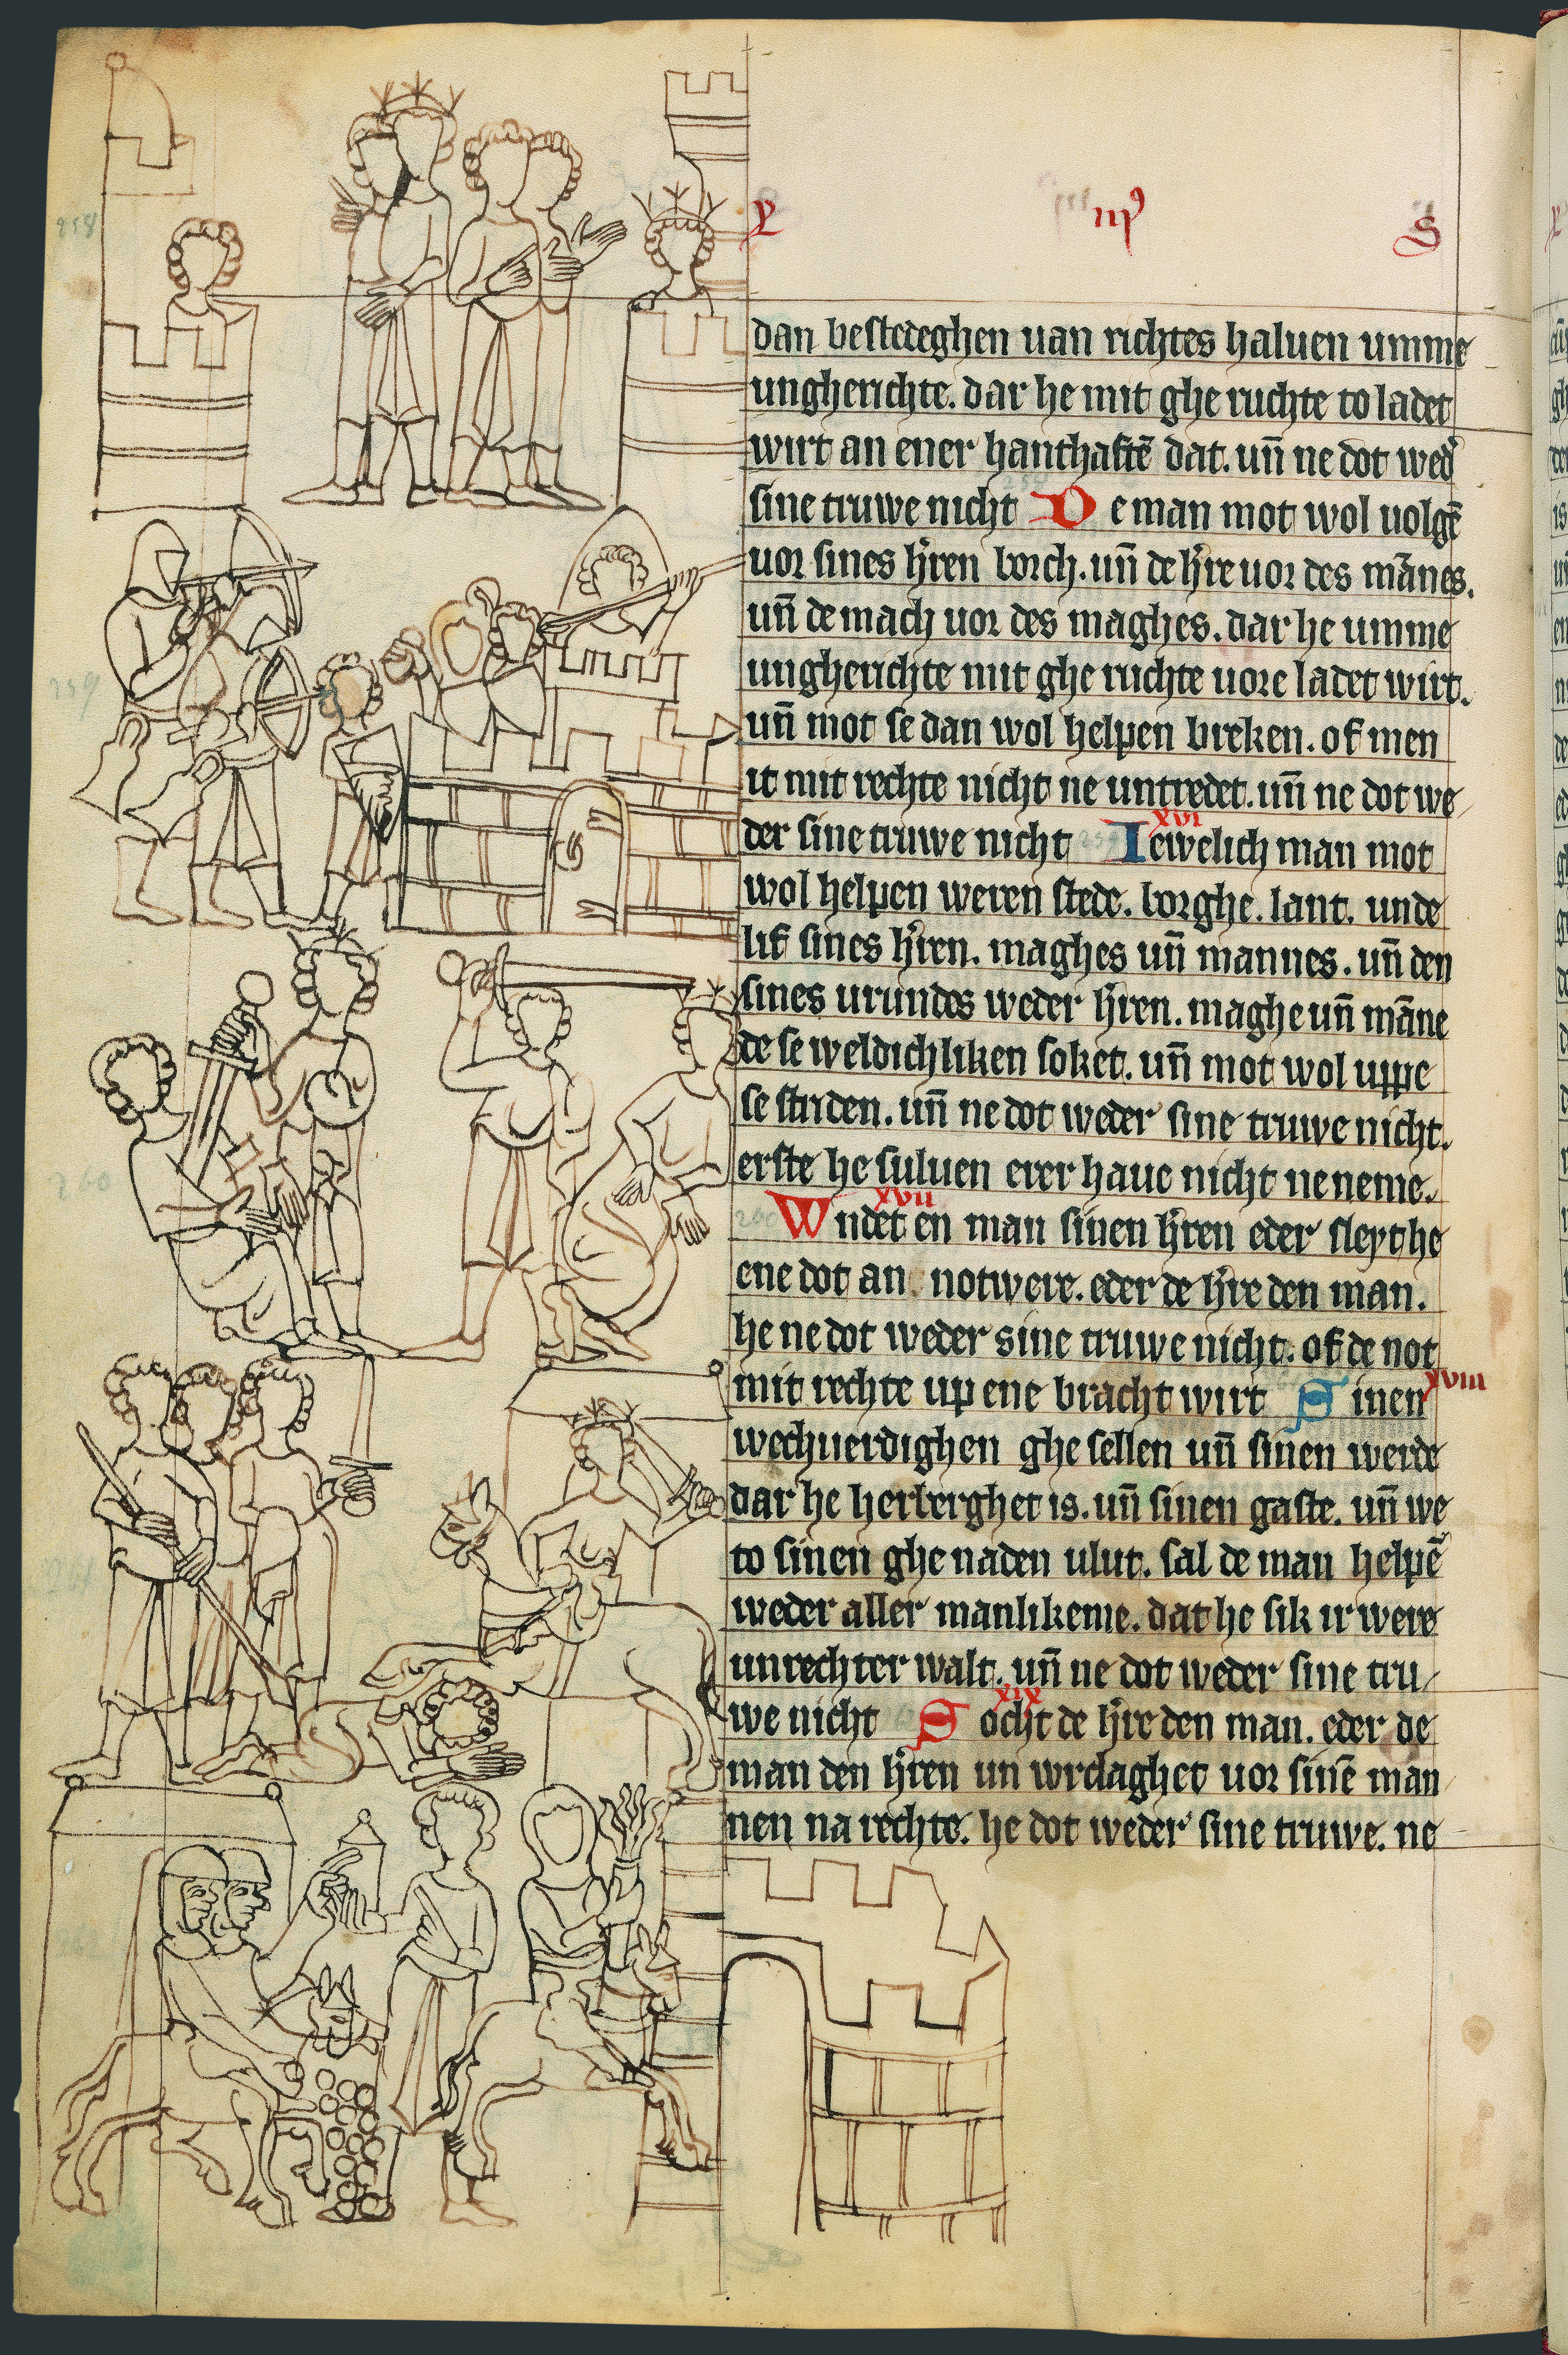 L iii⁹ S
dan bestedeghen uan richtes haluen umme
ungherichte. dar he mit ghe ruchte to ladet
wirt an ener hanthaftē dat. un̄ ne dot wed᷑
sine truwe nicht De man mot wol uolgē
uor sines h̄ren borch. un̄ de h̄re uor des mānes.
un̄ de mach uor des maghes. dar he umme
ungherichte mit ghe ruchte uore ladet wirt.
un̄ mot se dan wol helpen breken. of men
it mit rechte nicht ne untredet. un̄ ne dot we
xvi
der sine truwe nicht Iewelich man mot
wol helpen weren stede. borghe. lant. unde
lif sines h̄ren. maghes un̄ mannes. un̄ den
sines urundes weder h̄ren. maghe un̄ māne
de se weldichliken soket. un̄ mot wol uppe
se striden. un̄ ne dot weder sine truwe nicht.
erste he suluen erer haue nicht ne neme.
xvii
260 Wndet en man sinen h̄ren eder sleyt he
ene dot an notwere. eder de h̄re den man.
he ne dot weder sine truwe nicht. of de not
mit rechte up ene bracht wirt Sinen xviii
wechuerdighen ghe sellen un̄ sinen werde
dar he herberghet is. un̄ sinen gaste. un̄ we
to sinen ghe naden ulut. sal de man helpē
weder aller manlikeme. dat he sik ir were
unrechter walt. un̄ ne dot weder sine tru
xix
we nicht Socht de h̄re den man. eder de
man den h̄ren un wrclaghet uor sinē man
nen na rechte. he dot weder sine truwe. ne
258
259
260